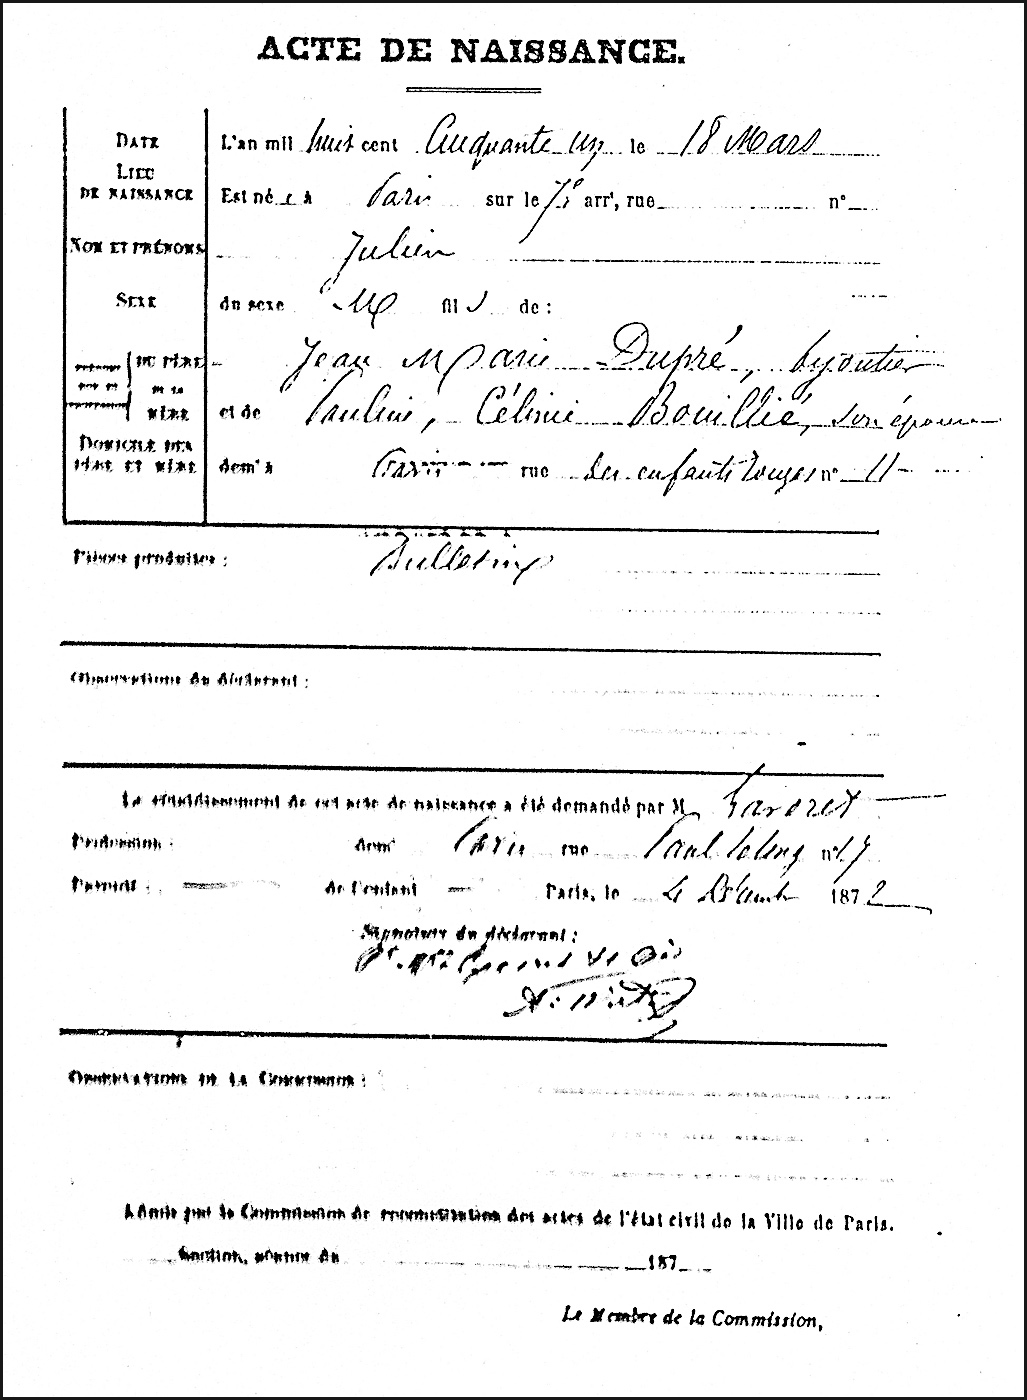 ACTE DE NAISSANCE.
DATE L'an mil huit cent Cinquante un le 18 Mars
LIEU
DE NAISSANCE Est né à Paris sur le 7e arrt, rue n°
NOM ET PRÉNOMS Julien
SEXE du sexe M fils de :
DU PÈRE Jean Marie Dupré, bijoutier
DE LA
MÈRE et de Pauline, Célinie Bouillié, son épouse
DOMICILE DES
PÈRE ET MÈRE demt à Paris rue des enfants rouges n° 11
Pièces produites : Bulletin
Observations du déclarant :
Le rétablissement de cet acte de naissance a été demandé par M
Profession : demt Paris rue Paul Lelong n° 17
Parenté : de l'enfant Paris, le 4 Décembre 1872
Signature du déclarant :
OBSERVATIONS DE LA COMMISSION :
Admis par la Commission de reconstitution des actes de l'état civil de la Ville de Paris.
Section, séance du 187
Le Membre de la Commission,